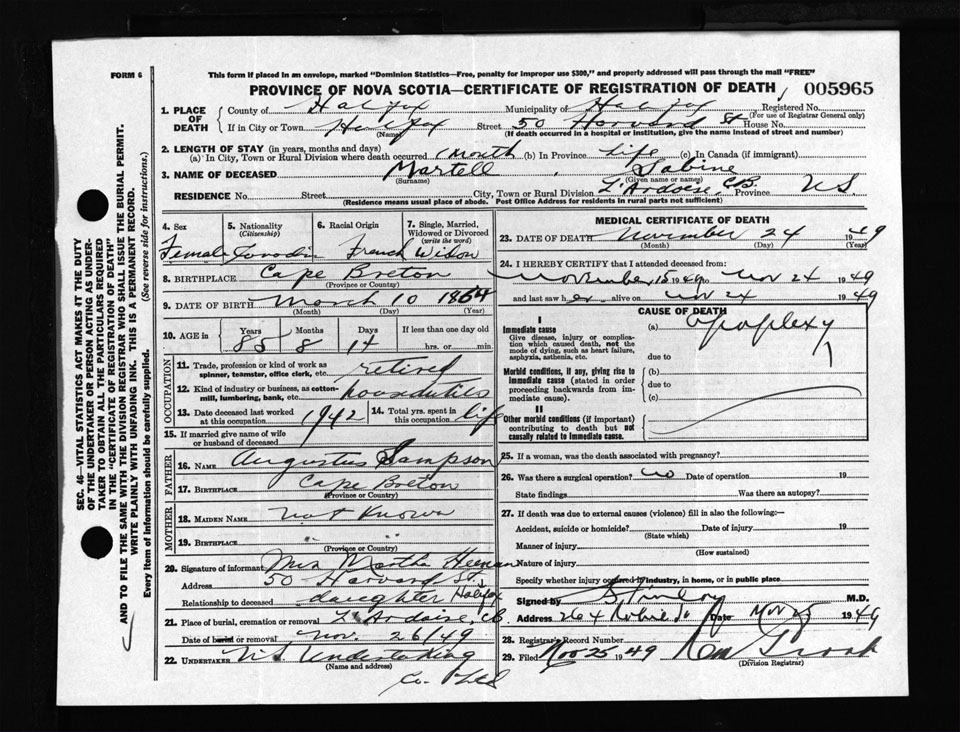 FORM 6
This form if placed in an envelope, marked "Dominion Statistics—Free, penalty for improper use $300," and properly addressed will pass through the mail "FREE"
PROVINCE OF NOVA SCOTIA—CERTIFICATE OF REGISTRATION OF DEATH 005965
1. PLACE OF DEATH
County of Halifax Municipality of Halifax Registered No.
(For use of Registrar General only)
If in City or Town Halifax Street 50 Harvard St House No.
(Name) (If death occurred in a hospital or institution, give the name instead of street and number)
2. LENGTH OF STAY (in years, months and days)
(a) In City, Town or Rural Division where death occurred 1 month (b) In Province life (c) In Canada (if immigrant)
3. NAME OF DECEASED Martell Sabine
(Surname) (Given name or names)
RESIDENCE No. Street City, Town or Rural Division L'Ardoise, C.B. Province N.S.
(Residence means usual place of abode. Post Office Address for residents in rural parts not sufficient)
4. Sex
Female
5. Nationality
(Citizenship)
Canadin
6. Racial Origin
French
7. Single, Married, Widowed or Divorced
(write the word)
Widow
8. BIRTHPLACE Cape Breton
(Province or County)
9. DATE OF BIRTH March 10 1864
(Month) (Day) (Year)
10. AGE in
Years Months Days If less than one day old
85 8 14 hrs. or min.
OCCUPATION
11. Trade, profession or kind of work as spinner, teamster, office clerk, etc. retired
12. Kind of industry or business, as cotton-mill, lumbering, bank, etc.
13. Date deceased last worked at this occupation 1942
14. Total yrs. spent in this occupation life
15. If married give name of wife or husband of deceased
FATHER
16. NAME Augustus Sampson
17. BIRTHPLACE Cape Breton
(Province or County)
MOTHER
18. MAIDEN NAME not Known
19. BIRTHPLACE " "
(Province or County)
20. Signature of informant Mrs Martha Heenan
Address 50 Harvard St., Halifax
Relationship to deceased daughter
21. Place of burial, cremation or removal L'Ardoise, C.B.
Date of burial or removal Nov. 26/49
22. UNDERTAKER N.S. Undertaking
(Name and address)
Co. Ltd
MEDICAL CERTIFICATE OF DEATH
23. DATE OF DEATH November 24 1949
(Month) (Day) (Year)
24. I HEREBY CERTIFY that I attended deceased from:
November 15 1949 to Nov 24 1949
and last saw her alive on Nov 24 1949
CAUSE OF DEATH
I
Immediate cause
Give disease, injury or complication which caused death, not the mode of dying, such as heart failure, asphyxia, asthenia, etc.
(a) apoplexy
due to
Morbid conditions, if any, giving rise to immediate cause (stated in order proceeding backwards from immediate cause).
(b)
due to
(c)
II
Other morbid conditions (if important) contributing to death but not causally related to immediate cause.
25. If a woman, was the death associated with pregnancy?
26. Was there a surgical operation? no Date of operation 19
State findings Was there an autopsy?
27. If death was due to external causes (violence) fill in also the following:—
Accident, suicide or homicide? Date of injury 19
(State which)
Manner of injury
(How sustained)
Nature of injury
Specify whether injury occurred in industry, in home, or in public place
Signed by M.D.
Address 264 Robie St Date Nov 25 1949
28. Registrar's Record Number
29. Filed Nov 25 1949
(Division Registrar)
SEC. 46—VITAL STATISTICS ACT MAKES IT THE DUTY
OF THE UNDERTAKER OR PERSON ACTING AS UNDERTAKER
TO OBTAIN ALL THE PARTICULARS REQUIRED
IN THE "CERTIFICATE OF REGISTRATION OF DEATH"
AND TO FILE THE SAME WITH THE DIVISION REGISTRAR WHO SHALL ISSUE THE BURIAL PERMIT.
WRITE PLAINLY WITH UNFADING INK. THIS IS A PERMANENT RECORD.
Every item of information should be carefully supplied. (See reverse side for instructions.)